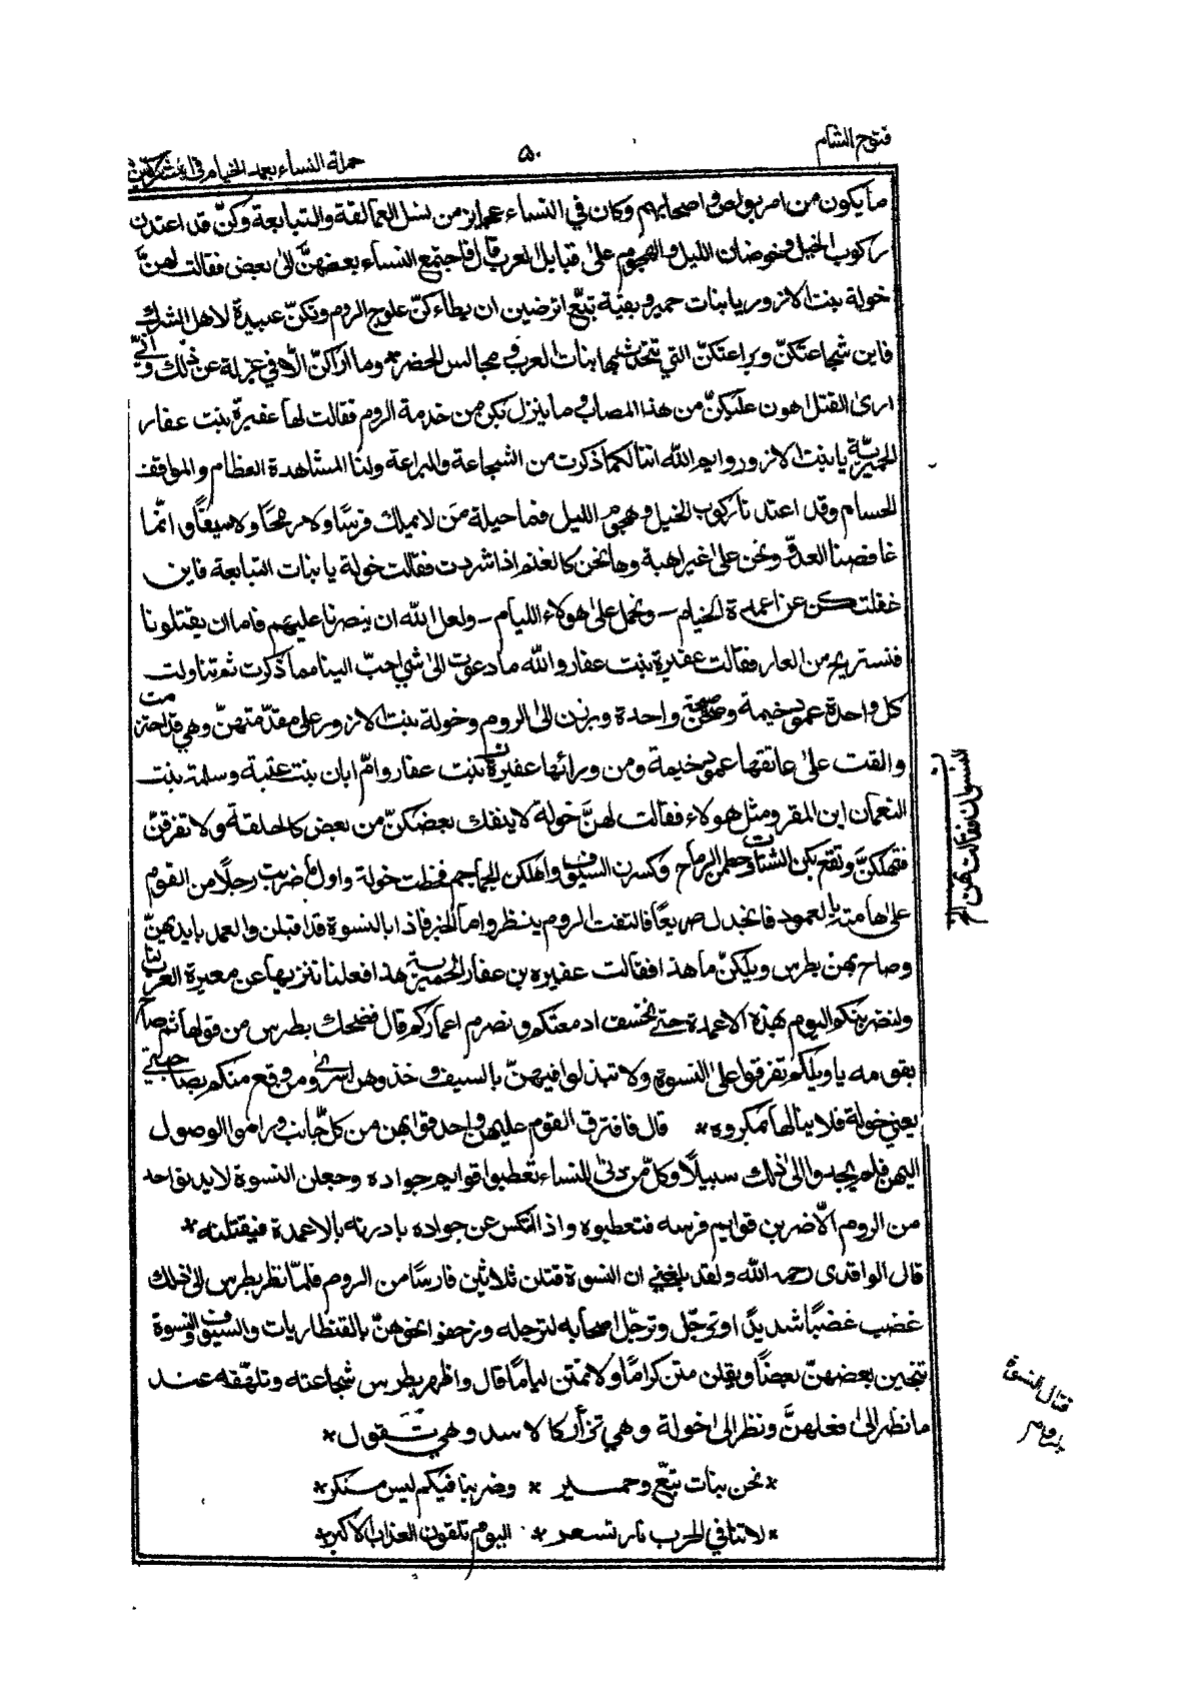 فتوح الشام
٥٠
حملة النساء بعمد الخيام في
ما يكون من امر بولص واصحابهم وكان في النساء عجايز من نسل العمالقة والتبابعة وكنّ قد اعتدن
ركوب الخيل وخوضان الليل والهجوم على قبايل العرب قال فاجتمع النساء بعضهنّ الى بعض فقالت لهنّ
خولة بنت الازور يا بنات حمير وبقية تبّع اترضين ان يطاءكنّ علوج الروم وتكنّ عبيدة لاهل الشرك
فاين شجاعتكنّ وبراعتكنّ التي تتحدث بها بنات العرب في مجالس الحضر وما اراكنّ الّا في عزلة عن ذلك وانّي
ارى القتل اهون عليكنّ من هذا المصاب وما ينزل بكن من خدمة الروم فقالت لها عفيرة بنت عفار
الحميريّة يا بنت الازور وايم الله اننا لكما ذكرت من الشجاعة والبراعة ولنا المشاهدة العظام والمواقف
الحسام وقد اعتدنا ركوب الخيل وهجوم الليل فما حيلة من لا يملك فرسًا ولا رمحًا ولا سيفًا وانّما
غافصنا العدوّ ونحن على غير اهبة وها نحن كالغنم اذا شردت فقالت خولة يا بنات التبابعة فاين
غفلتكن عن اعمدة الخيام – ونحمل على هولاء الليام – ولعل الله ان ينصرنا عليهم فاما ان يقتلونا
فنستريح من العار فقالت عفيرة بنت عفار والله ما دعوت الى شي احبّ الينا مما ذكرت ثم تناولت
كل واحدة عمود خيمة وصحن صيحة واحدة وبرزن الى الروم وخولة بنت الازور على مقدّمتهنّ وهي قد احتزمت
والقت على عاتقها عمود خيمة ومن ورائها عفيرة بنت عفار وامّ ابان بنت عتبة وسلمة بنت
النعمان ابن المقر ومثل هولاء فقالت لهنّ خولة لا ينفك بعضكنّ من بعض كالحلقة ولا تفرقنّ
فتهلكنّ وتقع بكن الشتات وحطمن الرماح وكسرن السيوف واهلكن الجماجم فخطت خولة واول ما ضربت رجلًا من القوم
على هامته بالعمود فانجدل صريعًا فالتفت الروم ينظروا ما الخبر فاذا بالنسوة قد اقبلن والعمد بايديهنّ
وصاح بهن بطرس ويلكنّ ما هذا فقالت عفيره بن عفار الحميرية هذا فعلنا ننزيها عن معيرة العرب لنا
ولنضربنكم اليوم بهذه الاعمدة حتى نخسف ادمغتكم ونصرم اعماركم قال فضحك بطرس من قولها ثم صاح
بقومه يا ويلكم تفرقوا على النسوة ولا تبذلوا فيهنّ بالسيف وخذوهن اسرى ومن وقع منكم بصاحبتي
يعني خولة فلا ينالها بمكروه* قال فافترق القوم عليهن واحدقوا بهن من كل جانب وراموا الوصول
اليهن فلم يجدوا الى ذلك سبيلًا وكل من دنى للنساء تعطبوا قوايم جواده وجعلن النسوة لا يدنو احد
من الروم الّا ضربن قوايم فرسه فتعطبوه واذا انكس عن جواده بادرنه بالاعمدة فيقتلنه*
قال الواقدى رحمه الله ولقد بلغني ان النسوة قتلن ثلاثين فارسًا من الروم فلمّا نظر بطرس الى ذلك
غضب غضبًا شديدًا وترجّل وترجّل اصحابه لترجله وزحفوا نحوهنّ بالقنطاريات والسيوف والنسوة
تنجين بعضهنّ بعضًا ويقلن متن كرامًا ولا تمتن ليامًا قال واظهر بطرس شجاعته وتلهّفه عند
ما نظر الى فعلهنّ ونظر الى خولة وهي تزأر كالاسد وهي تقول*
*نحن بنات تبّع وحمير * وضربنا فيكم ليس منكر*
*لاننا في الحرب نار تسعر * اليوم تلقون العذاب الاكبر*
قتال النسوة
بروم